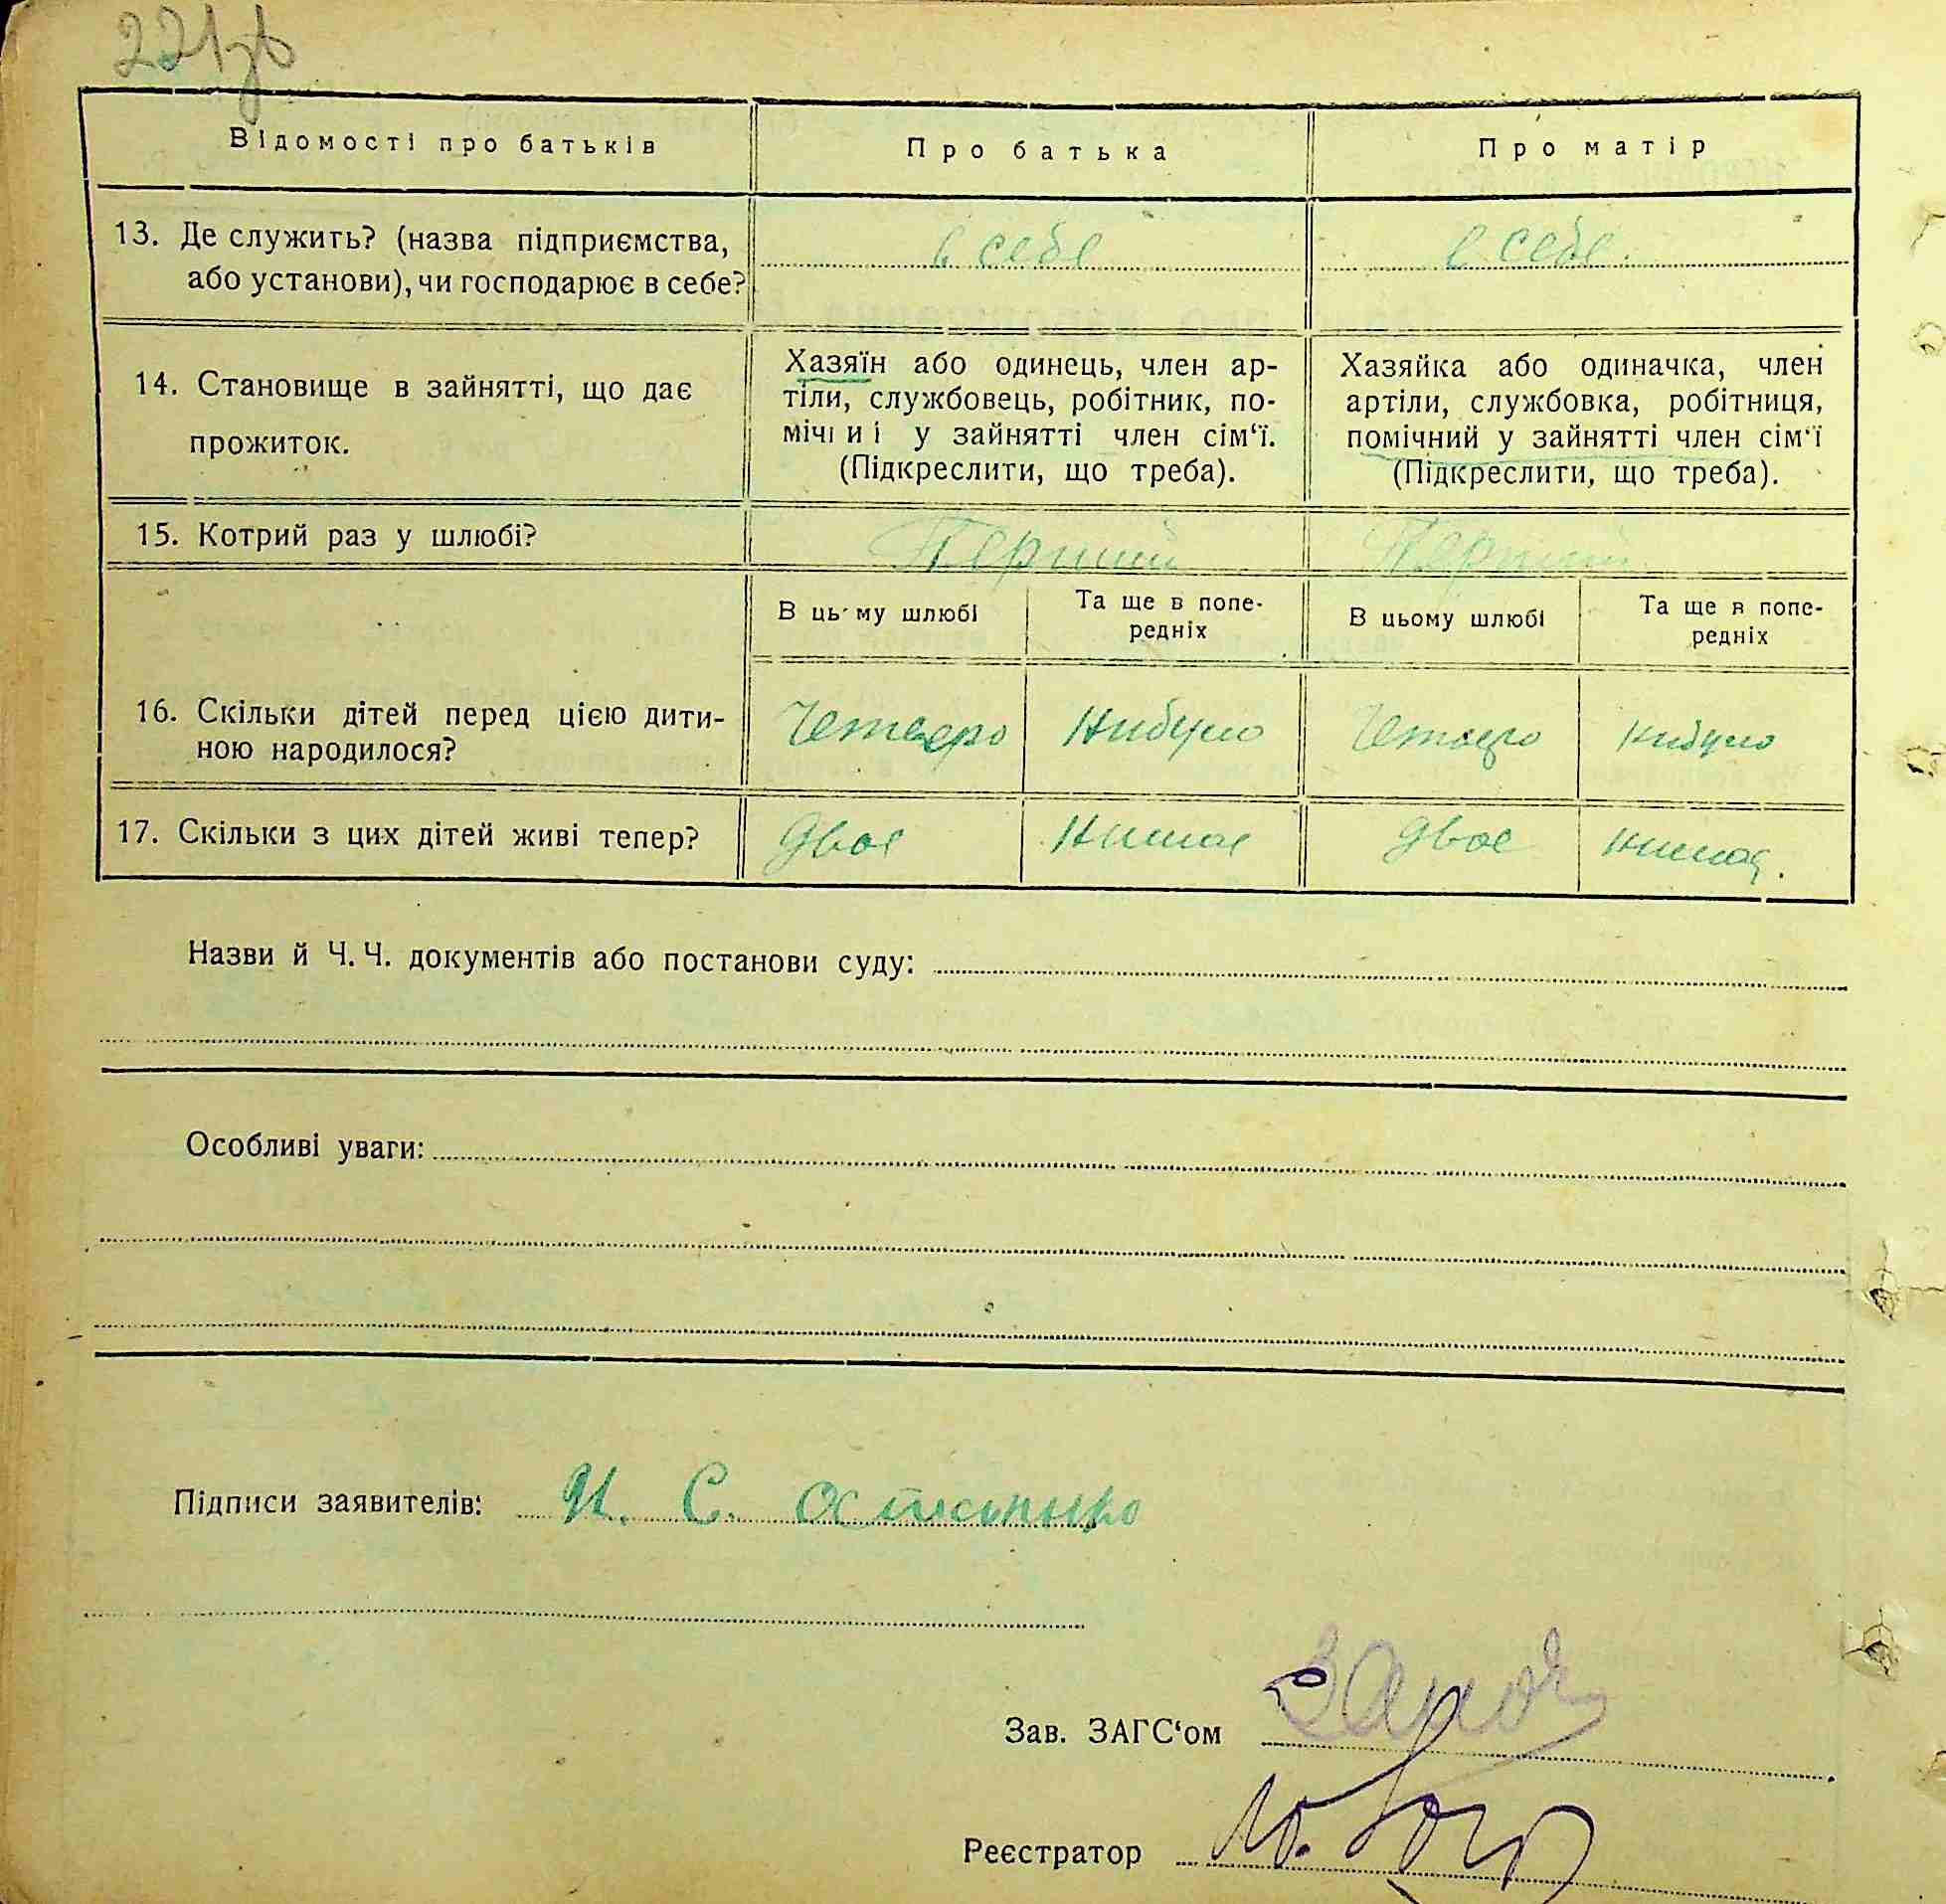 221зв
Відомості про батьків Про батька Про матір
13. Де служить? (назва підприємства, в себе в себе.
або установи), чи господарює в себе?
Хазяїн або одинець, член ар- Хазяйка або одиначка, член
14. Становище в зайнятті, що дає тіли, службовець, робітник, по- артіли, службовка, робітниця,
прожиток. мічний у зайнятті член сім‘ї. помічний у зайнятті член сім‘ї
(Підкреслити, що треба). (Підкреслити, що треба).
15. Котрий раз у шлюбі? Перший Перший
В цьму шлюбі Та ще в попе- В цьому шлюбі Та ще в попе-
редніх редніх
16. Скільки дітей перед цією дити- Четверо Нибуло Четверо Нибуло
ною народилося?
17. Скільки з цих дітей живі тепер? Двое Нимае Двое Нимає.
Назви й Ч. Ч. документів або постанови суду:
Особливі уваги:
Підписи заявителів: И. С. Остапенко
Зав. ЗАГС‘ом
Реєстратор